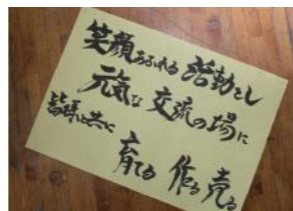 笑顔あふれる活動とし
元気な交流の場に
皆様と共に
育てる 作る 売る